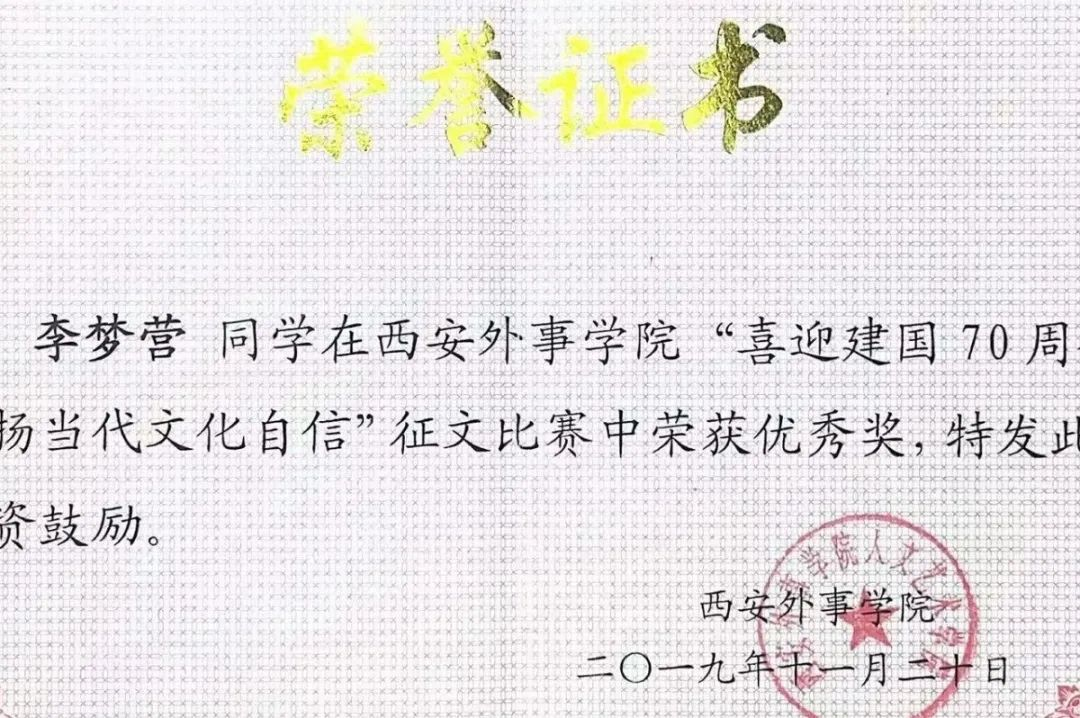 荣誉证书
李梦营 同学在西安外事学院“喜迎建国70周
扬当代文化自信”征文比赛中荣获优秀奖,特发此
资鼓励。
西安外事学院人文艺术学院
西安外事学院
二〇一九年十一月二十日